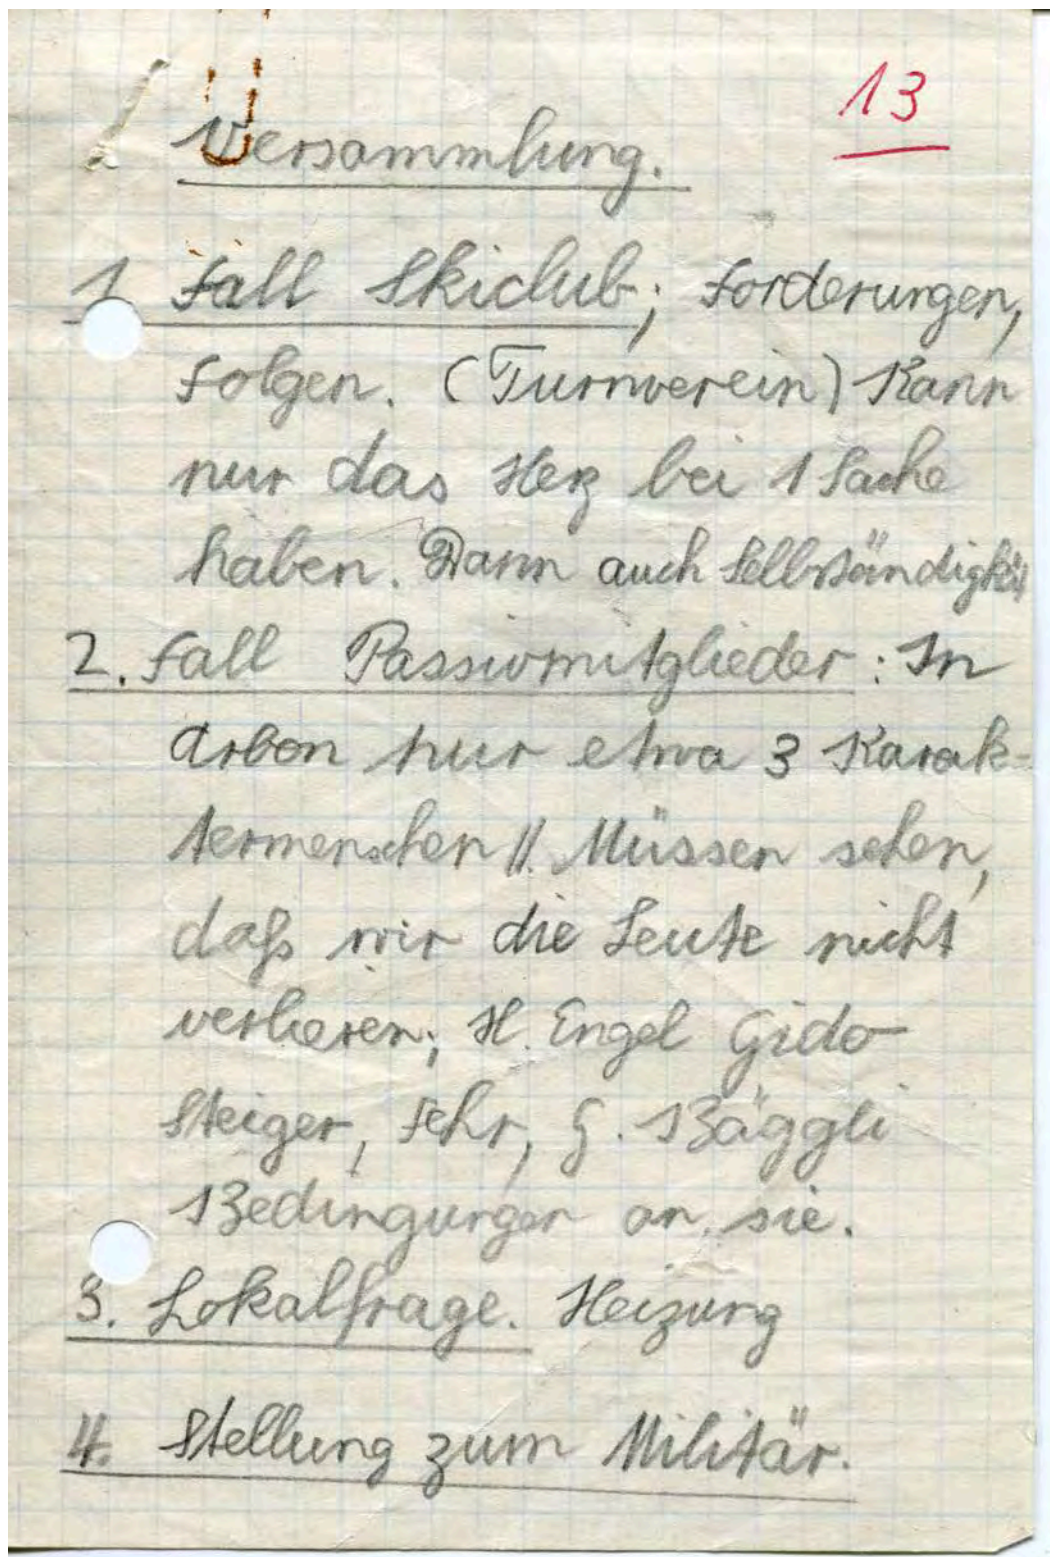 13
Versammlung.
1. Fall Skiclub; Forderungen,
Folgen. (Turnverein) Kann
nur das Herz bei 1 Sache
haben. Dann auch Selbständigkeit
2. Fall Passivmitglieder: In
Arbon nur etwa 3 Karak-
termenschen !!. Müssen sehen,
daß wir die Leute nicht
verlieren; H. Engel Gido
Steiger, Fehr, G. Bäggli
Bedingungen an sie.
3. Lokalfrage. Heizung
4. Stellung zum Militär.